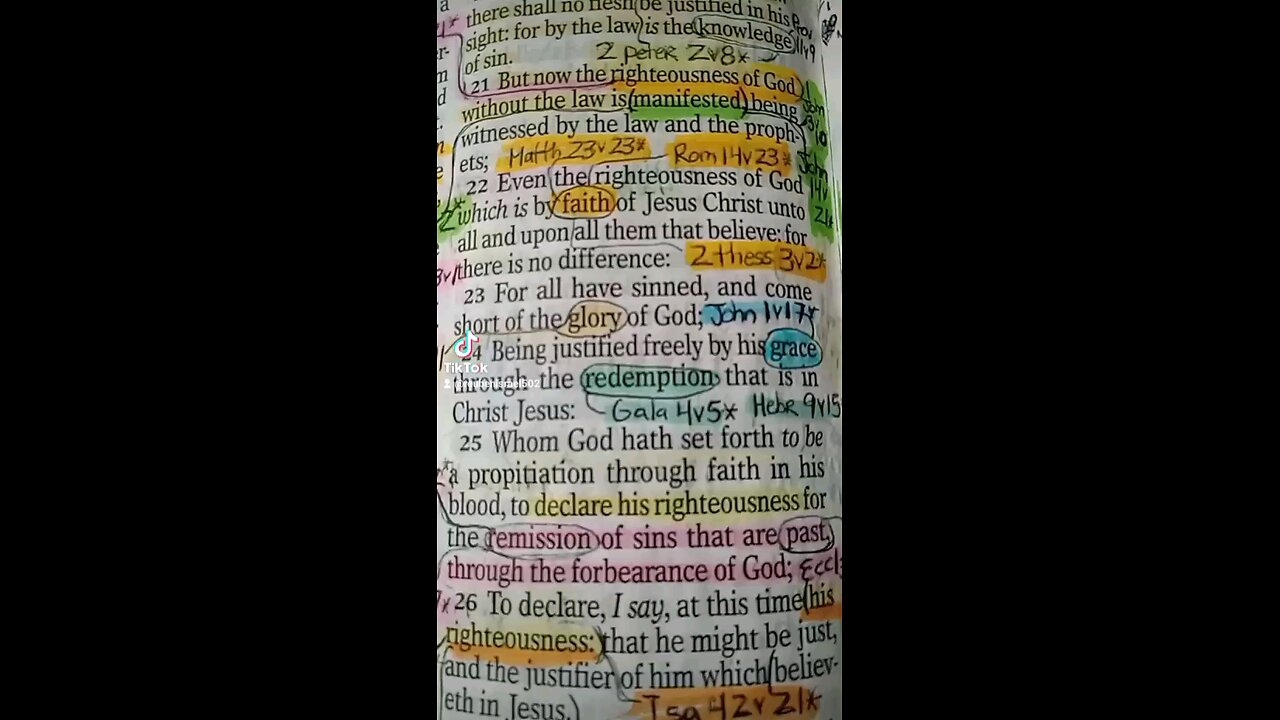 there shall no flesh be justified in his
sight: for by the law is the knowledge
of sin.
2 peter 2v8*
21 But now the righteousness of God
without the law is (manifested) being
witnessed by the law and the proph-
ets; Matth 23v23* Rom 14v23*
John
14v
21*
22 Even the righteousness of God
which is by faith of Jesus Christ unto
all and upon all them that believe: for
there is no difference: 2 thess 3v2*
23 For all have sinned, and come
short of the glory of God; John 1v17*
24 Being justified freely by his grace
TikTok
through the redemption that is in
Christ Jesus: Gala 4v5* Hebr 9v15
25 Whom God hath set forth to be
a propitiation through faith in his
blood, to declare his righteousness for
the remission of sins that are past,
through the forbearance of God; Eccl
26 To declare, I say, at this time (his
righteousness:) that he might be just,
and the justifier of him which believ-
eth in Jesus.
Isa 42v21*